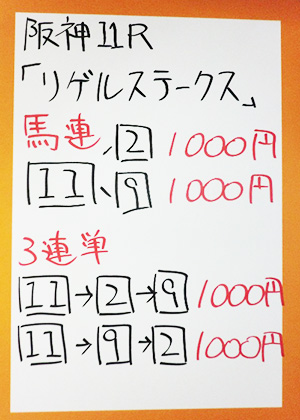 阪神11R
「リゲルステークス」
馬連、2 1000円
11、9 1000円
3連単
11→2→9 1000円
11→9→2 1000円